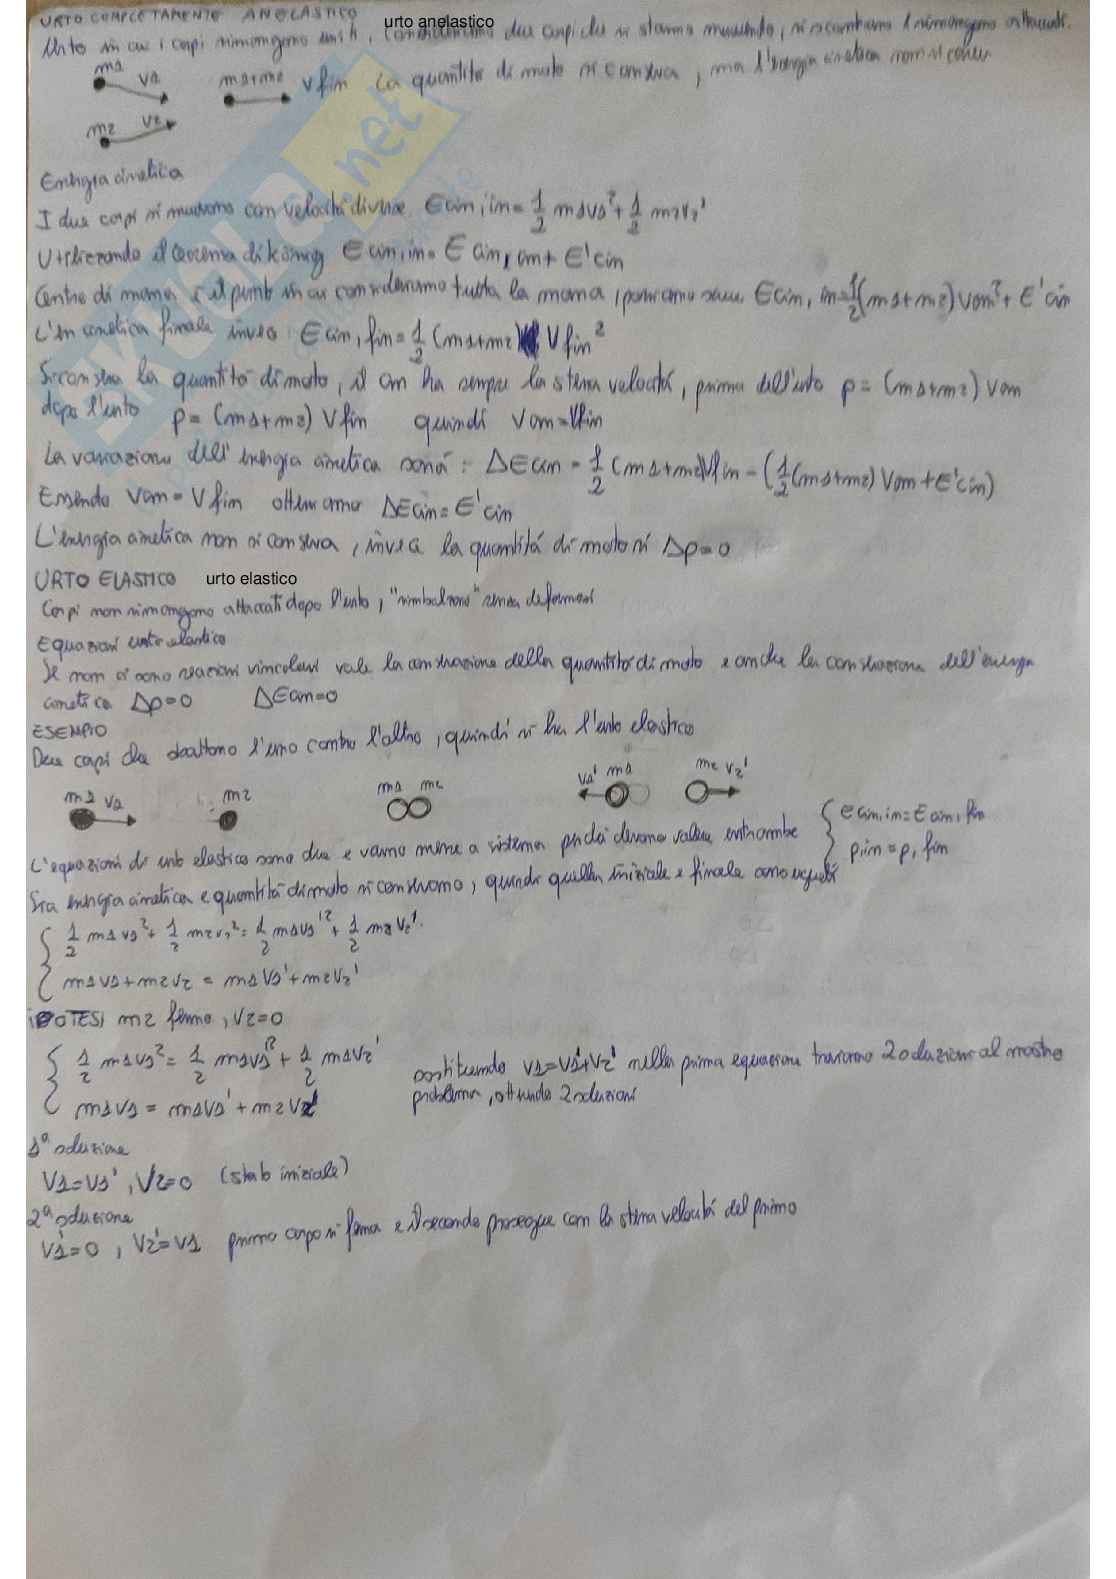 URTO COMPLETAMENTE ANELASTICO urto anelastico
Urto in cui i corpi rimangono uniti, consideriamo due corpi che si stanno muovendo, si scontrano e rimangono attaccati.
m1 v1 m1+m2 v fin La quantità di moto si conserva, ma l'energia cinetica non si conser
m2 v2
Energia cinetica
I due corpi si muovono con velocità diverse Ecin,in = 1/2 m1v1² + 1/2 m2v2²
Utilizzando il teorema di König Ecin,in = Ecin,cm + E'cin
Centro di massa è il punto in cui consideriamo tutta la massa, possiamo scri Ecin,in = 1/2 (m1+m2) Vcm² + E'cin
L'en cinetica finale invece Ecin,fin = 1/2 (m1+m2) Vfin²
Si conserva la quantità di moto, il cm ha sempre la stessa velocità, prima dell'urto p = (m1+m2) Vcm
dopo l'urto p = (m1+m2) Vfin quindi Vcm=Vfin
La variazione dell'energia cinetica sarà: ΔEcin = 1/2 (m1+m2)Vfin - (1/2 (m1+m2) Vcm + E'cin)
Essendo Vcm = Vfin otteniamo ΔEcin = E'cin
L'energia cinetica non si conserva, invece la quantità di moto sì Δp=0
URTO ELASTICO urto elastico
Corpi non rimangono attaccati dopo l'urto, "rimbalzano" senza deformarsi
Equazioni urto elastico
Se non ci sono reazioni vincolari vale la conservazione della quantità di moto e anche la conservazione dell'energia
cinetica Δp=0 ΔEcin=0
ESEMPIO
Due corpi che sbattono l'uno contro l'altro, quindi si ha l'urto elastico
m1 v1 m2 m1 m2 v1' m1 m2 v2'
L'equazioni di urto elastico sono due e vanno messe a sistema perché devono valere entrambe { Ecin,in = Ecin,fin
p,in = p,fin
Sia energia cinetica e quantità di moto si conservano, quindi quella iniziale e finale sono uguali
{ 1/2 m1v1² + 1/2 m2v2² = 1/2 m1v1'² + 1/2 m2v2'
m1v1+m2v2 = m1v1'+m2v2'
iPOTESI m2 fermo, v2=0
{ 1/2 m1v1² = 1/2 m1v1'² + 1/2 m1v2' sostituendo v1=v1'+v2' nella prima equazione troviamo 2 soluzioni al nostro
m1v1 = m1v1' + m2v2' problema, ottenendo 2 soluzioni
1ª soluzione
V1=V1', V2=0 (stato iniziale)
2ª soluzione
V1'=0, V2'=V1 primo corpo si ferma e il secondo prosegue con la stessa velocità del primo